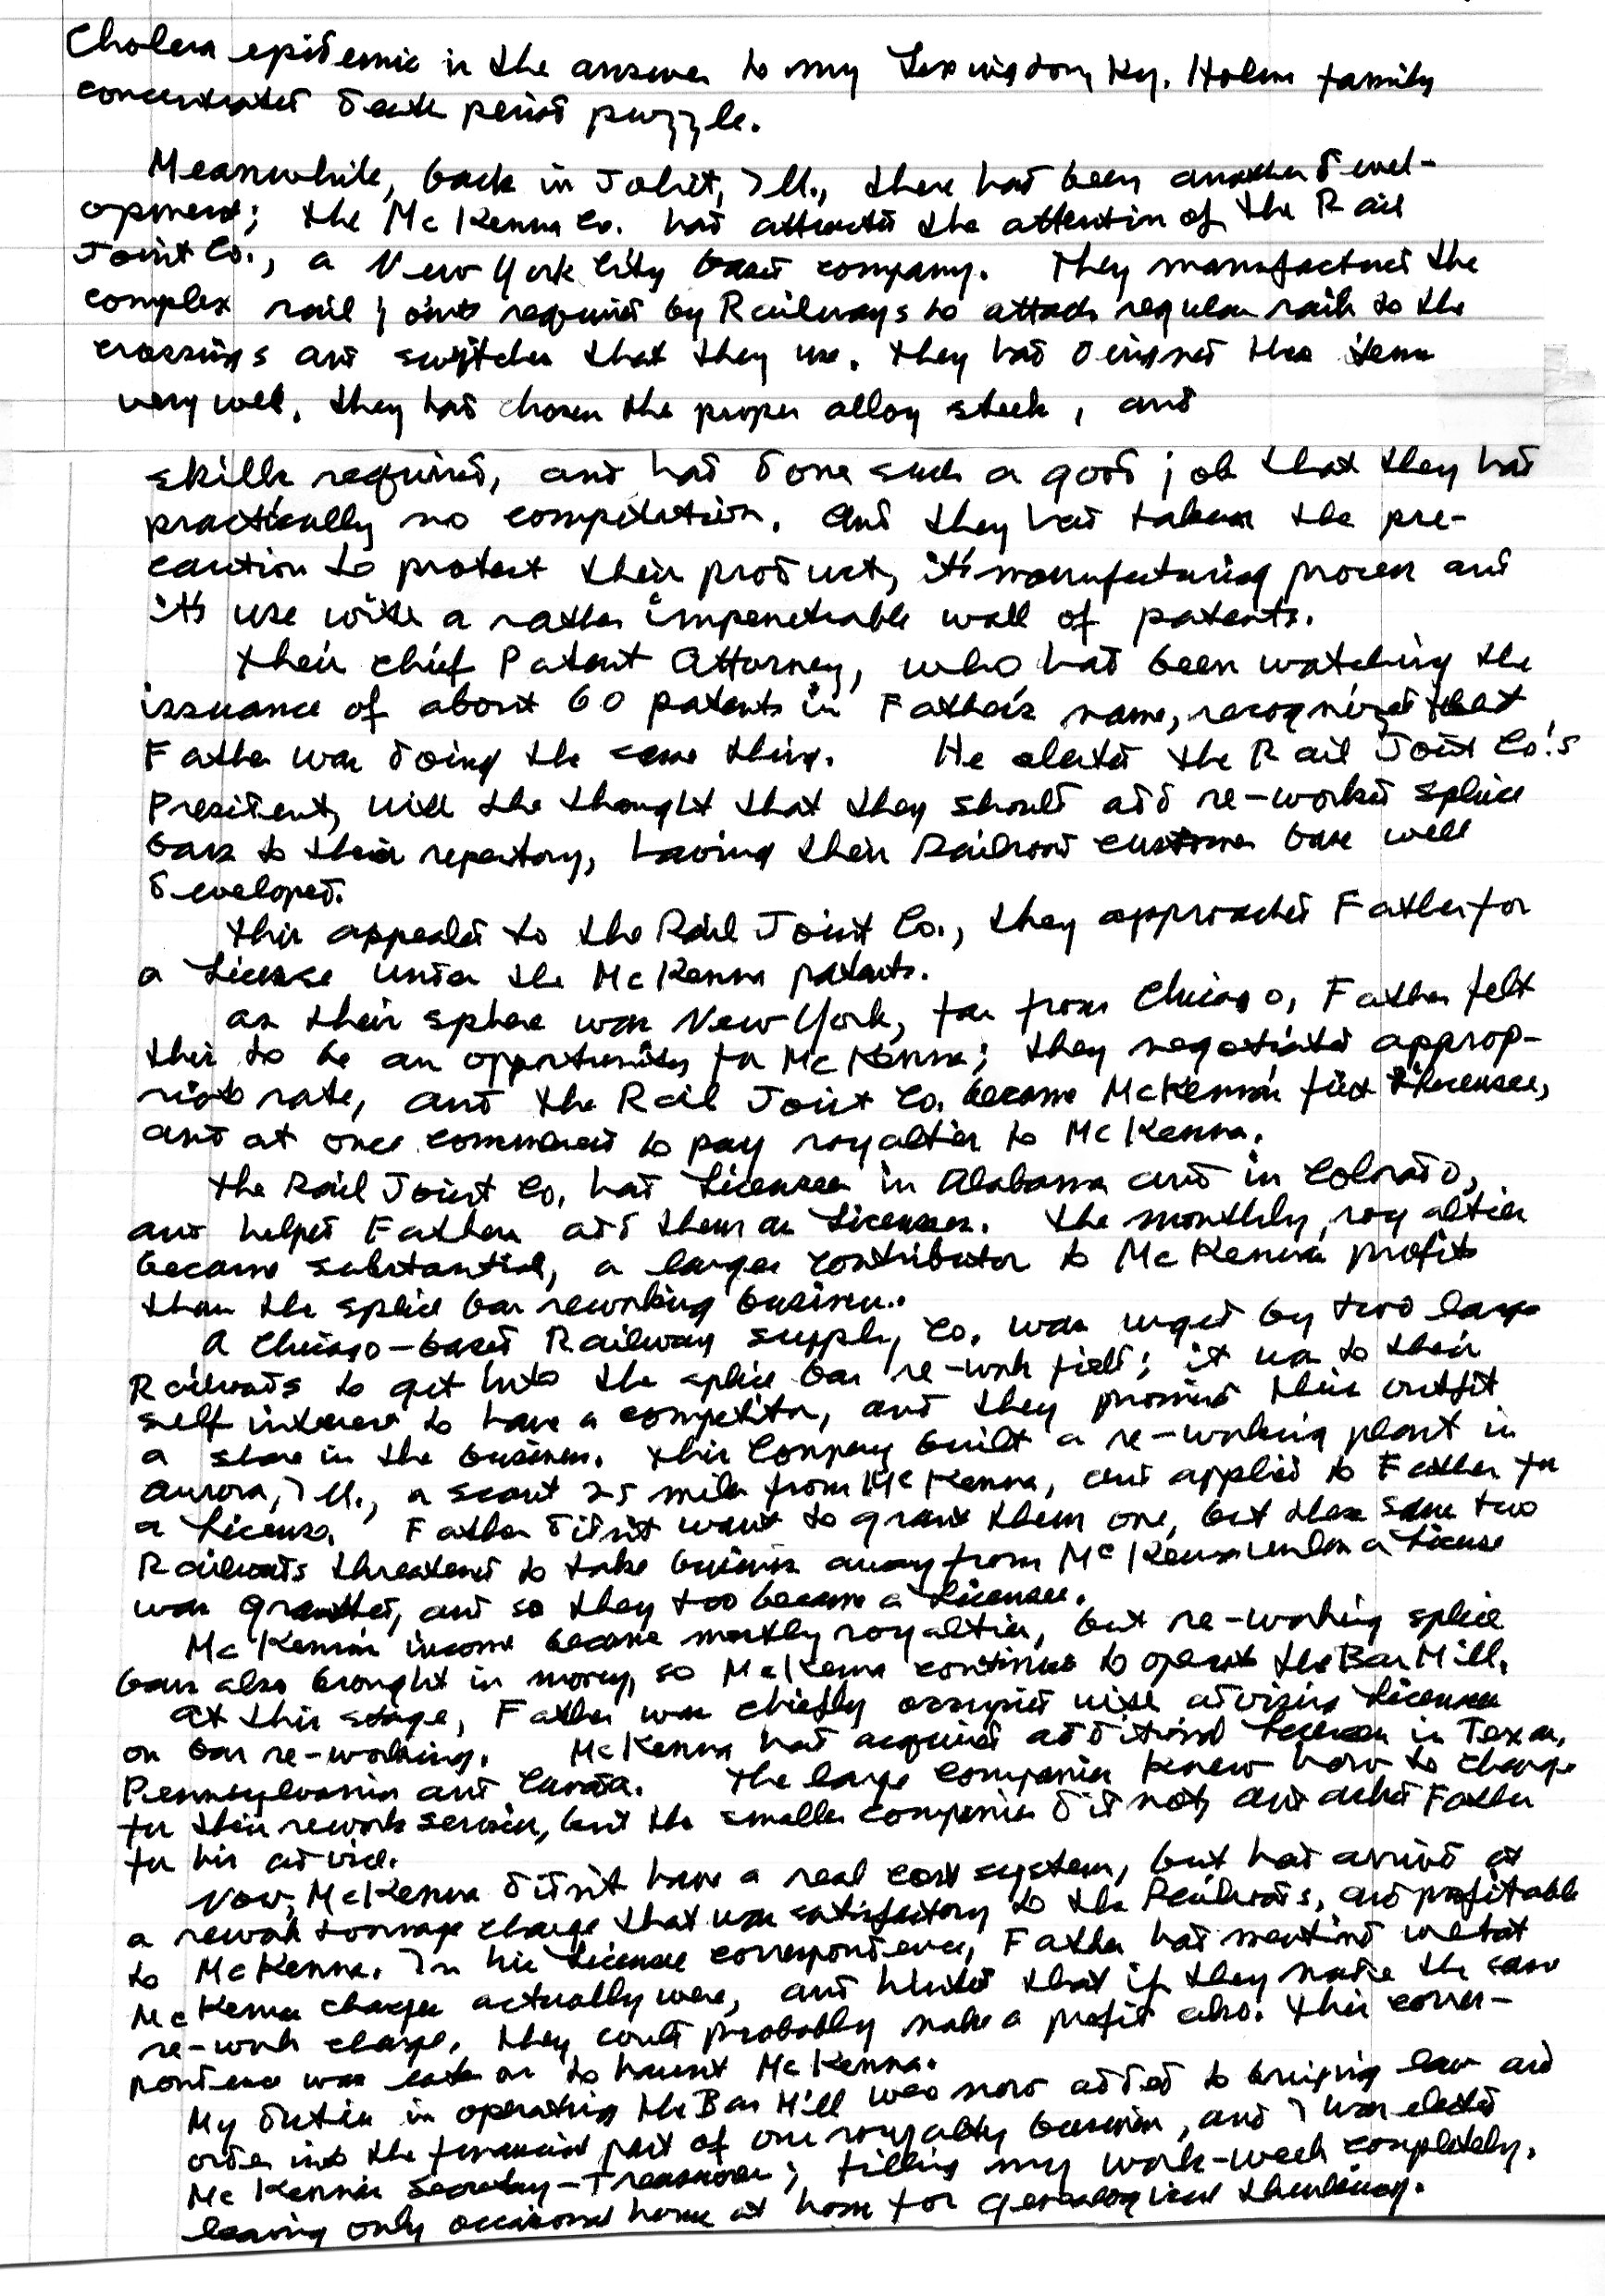 Cholera epidemic is the answer to my Lexington, Ky. Holm family
concentrated death period puzzle.
Meanwhile, back in Joliet, Ill., there had been another devel-
opment; the McKenna Co. had attracted the attention of the Rail
Joint Co., a New York City based company. They manufactured the
complex rail joints required by Railways to attach regular rails to the
crossings and switches that they use. They had designed these items
very well, they had chosen the proper alloy steels, and
skills required, and had done such a good job that they had
practically no competition. And they had taken the pre-
caution to protect their product, it's manufacturing process and
it's use with a rather impenetrable wall of patents.
Their chief Patent Attorney, who had been watching the
issuance of about 60 patents in Father's name, recognized that
Father was doing the same thing. He alerted the Rail Joint Co.'s
President, with the thought that they should add re-worked splice
bars to their repertory, having their Railroad customer base well
developed.
This appealed to the Rail Joint Co., they approached Father for
a License under the McKenna patents.
As their sphere was New York, far from Chicago, Father felt
this to be an opportunity for McKenna; they negotiated approp-
riate rate, and the Rail Joint Co. became McKenna's first Licensee,
and at once commenced to pay royalties to McKenna.
The Rail Joint Co. had Licensees in Alabama and in Colorado,
and helped Father add them as Licensees. The monthly royalties
became substantial, a larger contributor to McKenna profits
than the splice bar reworking business.
A Chicago-based Railway supply Co. was urged by two large
Railroads to get into the splice bar re-work field; it was to their
self interest to have a competitor, and they promised this outfit
a share in the business. This Company built a re-working plant in
Aurora, Ill., a scant 25 miles from McKenna, and applied to Father for
a License. Father didn't want to grant them one, but these same two
Railroads threatened to take business away from McKenna unless a License
was granted, and so they too became a Licensee.
McKenna's income became mostly royalties, but re-working splice
bars also brought in money, so McKenna continued to operate the Bar Mill.
At this stage, Father was chiefly occupied with advising Licensees
on bar re-working. McKenna had acquired additional Licensees in Texas,
Pennsylvania and Canada. The large companies knew how to charge
for their rework services, but the smaller companies did not, and asked Father
for his advice.
Now, McKenna didn't have a real cost system, but had arrived at
a rework tonnage charge that was satisfactory to the Railroads, and profitable
to McKenna. In his Licensee correspondence, Father had mentioned what
McKenna charges actually were, and hinted that if they made the same
re-work charge, they could probably make a profit also. This corres-
pondence was later on to haunt McKenna.
My duties in operating the Bar Mill was now added to bringing law and
order into the financial part of our royalty business, and I was elected
McKenna's Secretary-Treasurer; filling my work-week completely,
leaving only occasional hours at home for genealogical thinking.